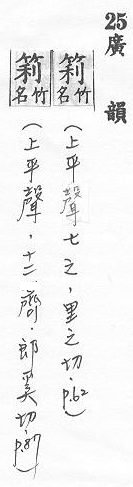 25廣韻
筣竹名
(上平聲七之,里之切,p.62)
筣竹名
(上平聲,十二齊,郎奚切,p.87)